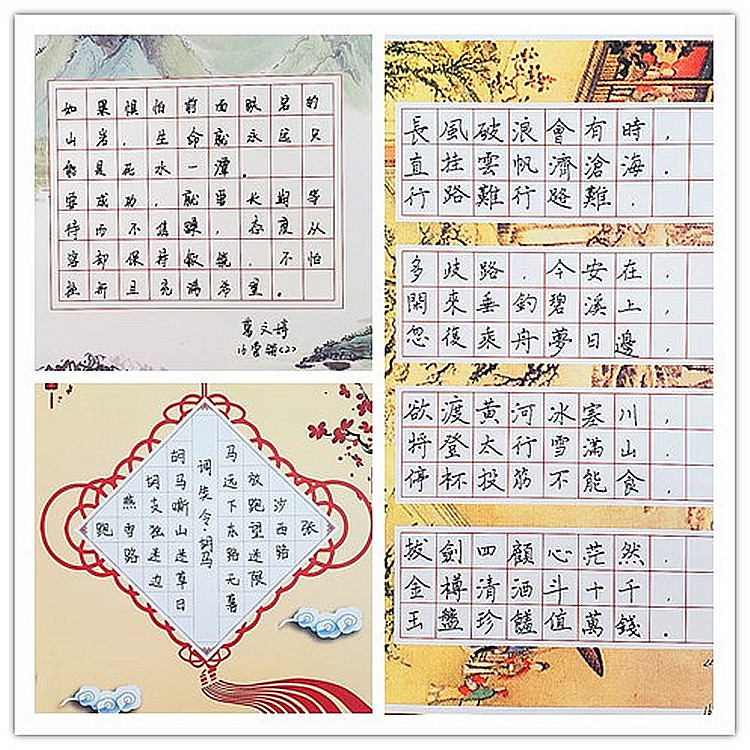 如果惧怕前面跌宕的
山岩，生命就永远只
能是死水一潭。
要成功，就要长期等
待而不焦躁，态度从
容却保持敏锐，不怕
挫折且充满希望。
葛文婷
16营销(2)
長風破浪會有時，
直挂雲帆濟滄海．
行路難行路難，
多歧路，今安在，
閑來垂釣碧溪上，
忽復乘舟夢日邊，
欲渡黃河冰塞川，
将登太行雪滿山．
停杯投筯不能食，
拔劍四顧心茫然．
金樽清酒斗十千，
玉盤珍饈值萬錢．
沙西路
放跑望迷
马远下东路无
令·胡马
胡马嘶山迷草日
胡支独迷边
燕雪路
跑